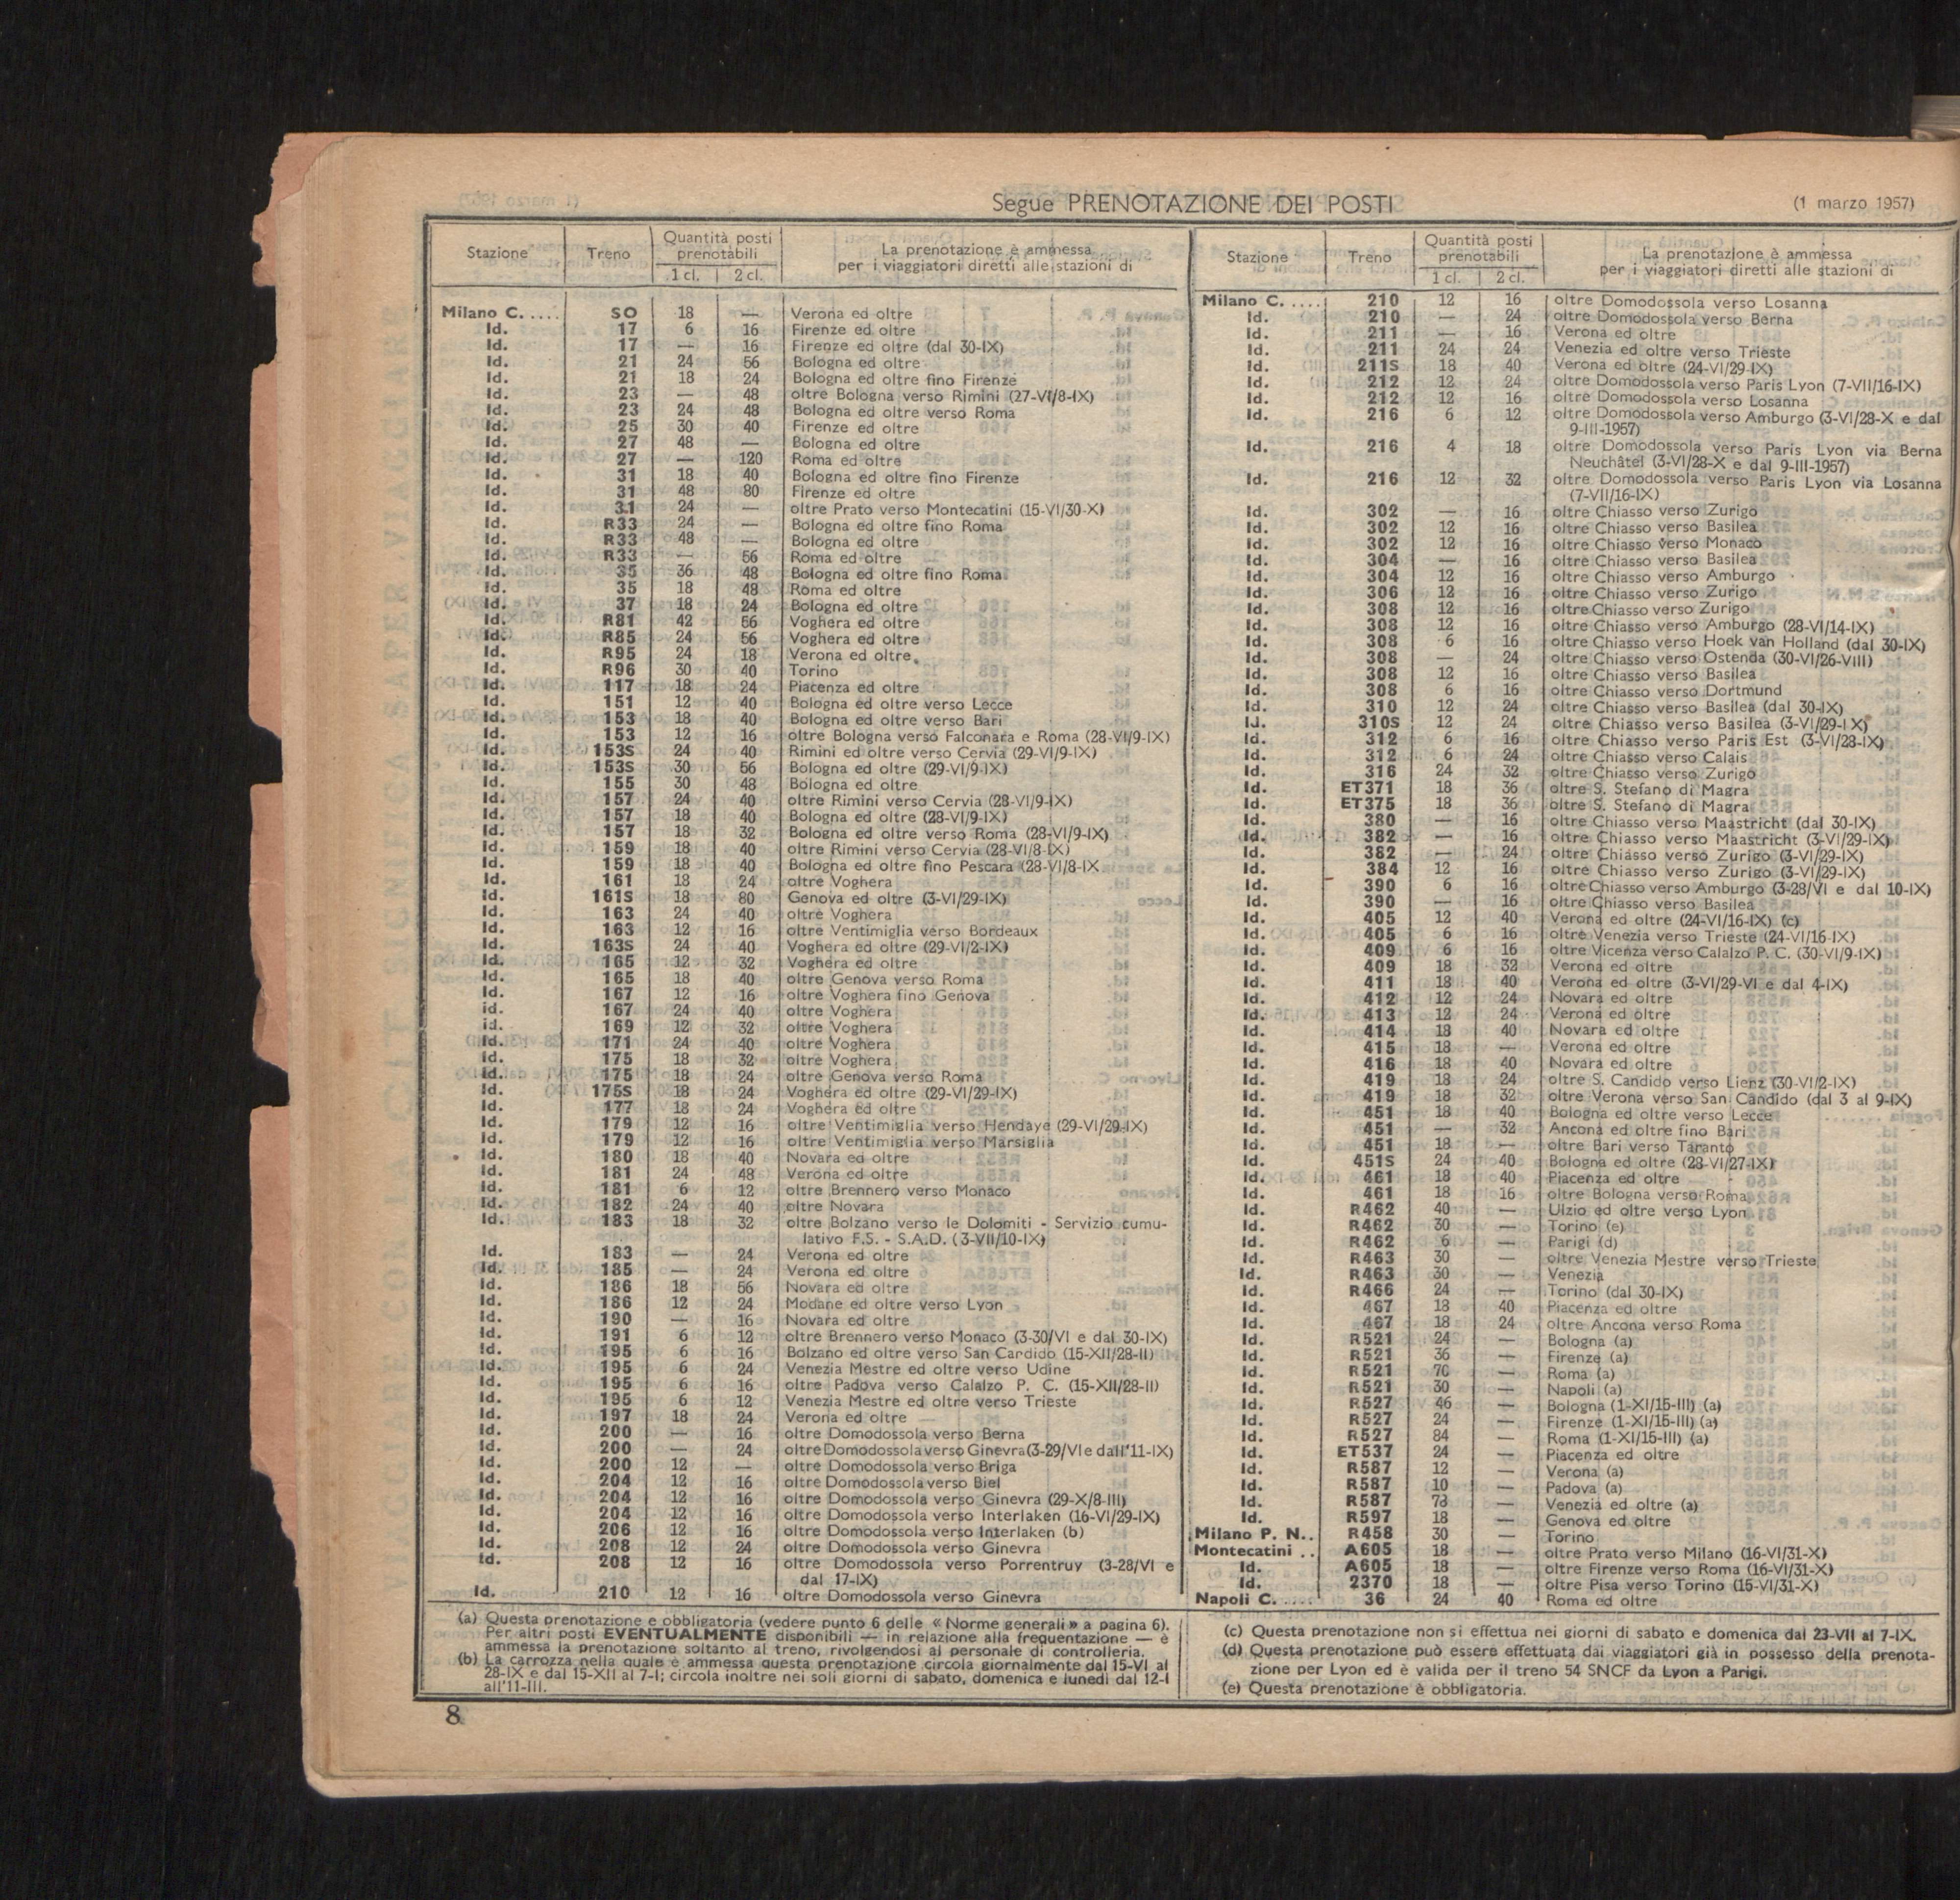 Segue PRENOTAZIONE DEI POSTI
(1 marzo 1957)
Stazione Treno Quantità posti prenotabili 1 cl. 2 cl. La prenotazione è ammessa per i viaggiatori diretti alle stazioni di
Milano C. .... SO 18 — Verona ed oltre
Id. 17 6 16 Firenze ed oltre
Id. 17 — 16 Firenze ed oltre (dal 30-IX)
Id. 21 24 56 Bologna ed oltre
Id. 21 18 24 Bologna ed oltre fino Firenze
Id. 23 — 48 oltre Bologna verso Rimini (27-VI/8-IX)
Id. 23 24 48 Bologna ed oltre verso Roma
Id. 25 30 40 Firenze ed oltre
Id. 27 48 — Bologna ed oltre
Id. 27 — 120 Roma ed oltre
Id. 31 18 40 Bologna ed oltre fino Firenze
Id. 31 48 80 Firenze ed oltre
Id. 31 24 — oltre Prato verso Montecatini (15-VI/30-X)
Id. R33 24 — Bologna ed oltre fino Roma
Id. R33 48 — Bologna ed oltre
Id. R33 — 56 Roma ed oltre
Id. 35 36 48 Bologna ed oltre fino Roma
Id. 35 18 48 Roma ed oltre
Id. 37 18 24 Bologna ed oltre
Id. R81 42 56 Voghera ed oltre
Id. R85 24 56 Voghera ed oltre
Id. R95 24 18 Verona ed oltre
Id. R96 30 40 Torino
Id. 117 18 24 Piacenza ed oltre
Id. 151 12 40 Bologna ed oltre verso Lecce
Id. 153 18 40 Bologna ed oltre verso Bari
Id. 153 12 16 oltre Bologna verso Falconara e Roma (28-VI/9-IX)
Id. 153S 24 40 Rimini ed oltre verso Cervia (29-VI/9-IX)
Id. 153S 30 56 Bologna ed oltre (29-VI/9-IX)
Id. 155 30 48 Bologna ed oltre
Id. 157 24 40 oltre Rimini verso Cervia (28-VI/9-IX)
Id. 157 18 40 Bologna ed oltre (28-VI/9-IX)
Id. 157 18 32 Bologna ed oltre verso Roma (28-VI/9-IX)
Id. 159 18 40 oltre Rimini verso Cervia (28-VI/8-IX)
Id. 159 18 40 Bologna ed oltre fino Pescara (28-VI/8-IX
Id. 161 18 24 oltre Voghera
Id. 161S 18 80 Genova ed oltre (3-VI/29-IX)
Id. 163 24 40 oltre Voghera
Id. 163 12 16 oltre Ventimiglia verso Bordeaux
Id. 163S 24 40 Voghera ed oltre (29-VI/2-IX)
Id. 165 12 32 Voghera ed oltre
Id. 165 18 40 oltre Genova verso Roma
Id. 167 12 16 oltre Voghera fino Genova
id. 167 24 40 oltre Voghera
id. 169 12 32 oltre Voghera
Id. 171 24 40 oltre Voghera
Id. 175 18 32 oltre Voghera
Id. 175 18 24 oltre Genova verso Roma
Id. 175S 18 24 Voghera ed oltre (29-VI/29-IX)
Id. 177 18 24 Voghera ed oltre
Id. 179 12 16 oltre Ventimiglia verso Hendaye (29-VI/29-IX)
Id. 179 12 16 oltre Ventimiglia verso Marsiglia
Id. 180 18 40 Novara ed oltre
Id. 181 24 48 Verona ed oltre
Id. 181 6 12 oltre Brennero verso Monaco
Id. 182 24 40 oltre Novara
Id. 183 18 32 oltre Bolzano verso le Dolomiti - Servizio cumu-
lativo F.S. - S.A.D. (3-VII/10-IX)
Id. 183 — 24 Verona ed oltre
Id. 185 — 24 Verona ed oltre
Id. 186 18 56 Novara ed oltre
Id. 186 12 24 Modane ed oltre verso Lyon
Id. 190 — 16 Novara ed oltre
Id. 191 6 12 oltre Brennero verso Monaco (3-30/VI e dal 30-IX)
Id. 195 6 16 Bolzano ed oltre verso San Cardido (15-XII/28-II)
Id. 195 6 24 Venezia Mestre ed oltre verso Udine
Id. 195 6 16 oltre Padova verso Calalzo P. C. (15-XII/28-II)
Id. 195 6 12 Venezia Mestre ed oltre verso Trieste
Id. 197 18 24 Verona ed oltre
Id. 200 — 16 oltre Domodossola verso Berna
Id. 200 — 24 oltre Domodossola verso Ginevra (3-29/VI e dall'11-IX)
Id. 200 12 — oltre Domodossola verso Briga
Id. 204 12 16 oltre Domodossola verso Biel
Id. 204 12 16 oltre Domodossola verso Ginevra (29-X/8-III)
Id. 204 12 16 oltre Domodossola verso Interlaken (16-VI/29-IX)
Id. 206 12 16 oltre Domodossola verso Interlaken (b)
Id. 208 12 24 oltre Domodossola verso Ginevra
Id. 208 12 16 oltre Domodossola verso Porrentruy (3-28/VI e
dal 17-IX)
Id. 210 12 16 oltre Domodossola verso Ginevra
(a) Questa prenotazione e obbligatoria (vedere punto 6 delle « Norme generali » a pagina 6).
Per altri posti EVENTUALMENTE disponibili — in relazione alla frequentazione — è
ammessa la prenotazione soltanto al treno, rivolgendosi al personale di controlleria.
(b) La carrozza nella quale è ammessa questa prenotazione circola giornalmente dal 15-VI al
28-IX e dal 15-XII al 7-I; circola inoltre nei soli giorni di sabato, domenica e lunedì dal 12-I
all'11-III.
8
Stazione Treno Quantità posti prenotabili 1 cl. 2 cl. La prenotazione è ammessa per i viaggiatori diretti alle stazioni di
Milano C. .... 210 12 16 oltre Domodossola verso Losanna
Id. 210 — 24 oltre Domodossola verso Berna
Id. 211 — 16 Verona ed oltre
Id. 211 24 24 Venezia ed oltre verso Trieste
Id. 211S 18 40 Verona ed oltre (24-VI/29-IX)
Id. 212 12 24 oltre Domodossola verso Paris Lyon (7-VII/16-IX)
Id. 212 12 16 oltre Domodossola verso Losanna
Id. 216 6 12 oltre Domodossola verso Amburgo (3-VI/28-X e dal
9-III-1957)
Id. 216 4 18 oltre Domodossola verso Paris Lyon via Berna
Neuchâtel (3-VI/28-X e dal 9-III-1957)
Id. 216 12 32 oltre Domodossola verso Paris Lyon via Losanna
(7-VII/16-IX)
Id. 302 — 16 oltre Chiasso verso Zurigo
Id. 302 12 16 oltre Chiasso verso Basilea
Id. 302 12 16 oltre Chiasso verso Monaco
Id. 304 — 16 oltre Chiasso verso Basilea
Id. 304 12 16 oltre Chiasso verso Amburgo
Id. 306 12 16 oltre Chiasso verso Zurigo
Id. 308 12 16 oltre Chiasso verso Zurigo
Id. 308 12 16 oltre Chiasso verso Amburgo (28-VI/14-IX)
Id. 308 6 16 oltre Chiasso verso Hoek van Holland (dal 30-IX)
Id. 308 — 24 oltre Chiasso verso Ostenda (30-VI/26-VIII)
Id. 308 12 16 oltre Chiasso verso Basilea
Id. 308 6 16 oltre Chiasso verso Dortmund
Id. 310 12 24 oltre Chiasso verso Basilea (dal 30-IX)
Id. 310S 12 24 oltre Chiasso verso Basilea (3-VI/29-IX)
Id. 312 6 16 oltre Chiasso verso Paris Est (3-VI/28-IX)
Id. 312 6 24 oltre Chiasso verso Calais
Id. 316 24 32 oltre Chiasso verso Zurigo
Id. ET371 18 36 oltre S. Stefano di Magra
Id. ET375 18 36 oltre S. Stefano di Magra
Id. 380 — 16 oltre Chiasso verso Maastricht (dal 30-IX)
Id. 382 — 16 oltre Chiasso verso Maastricht (3-VI/29-IX)
Id. 382 — 24 oltre Chiasso verso Zurigo (3-VI/29-IX)
Id. 384 12 16 oltre Chiasso verso Zurigo (3-VI/29-IX)
Id. 390 6 16 oltre Chiasso verso Amburgo (3-28/VI e dal 10-IX)
Id. 390 — 16 oltre Chiasso verso Basilea
Id. 405 12 40 Verona ed oltre (24-VI/16-IX) (c)
Id. 405 6 16 oltre Venezia verso Trieste (24-VI/16-IX)
Id. 409 6 16 oltre Vicenza verso Calalzo P. C. (30-VI/9-IX)
Id. 409 18 32 Verona ed oltre
Id. 411 18 40 Verona ed oltre (3-VI/29-VI e dal 4-IX)
Id. 412 12 24 Novara ed oltre
Id. 413 12 24 Verona ed oltre
Id. 414 18 40 Novara ed oltre
Id. 415 18 — Verona ed oltre
Id. 416 18 40 Novara ed oltre
Id. 419 18 24 oltre S. Candido verso Lienz (30-VI/2-IX)
Id. 419 18 32 oltre Verona verso San Candido (dal 3 al 9-IX)
Id. 451 18 40 Bologna ed oltre verso Lecce
Id. 451 — 32 Ancona ed oltre fino Bari
Id. 451 18 — oltre Bari verso Taranto
Id. 451S 24 40 Bologna ed oltre (28-VI/27-IX)
Id. 461 18 40 Piacenza ed oltre
Id. 461 18 16 oltre Bologna verso Roma
Id. R462 40 — Ulzio ed oltre verso Lyon
Id. R462 30 — Torino (e)
Id. R462 6 — Parigi (d)
Id. R463 30 — oltre Venezia Mestre verso Trieste
Id. R463 30 — Venezia
Id. R466 24 — Torino (dal 30-IX)
Id. 467 18 40 Piacenza ed oltre
Id. 467 18 24 oltre Ancona verso Roma
Id. R521 24 — Bologna (a)
Id. R521 36 — Firenze (a)
Id. R521 70 — Roma (a)
Id. R521 30 — Napoli (a)
Id. R527 46 — Bologna (1-XI/15-III) (a)
Id. R527 24 — Firenze (1-XI/15-III) (a)
Id. R527 84 — Roma (1-XI/15-III) (a)
Id. ET537 24 — Piacenza ed oltre
Id. R587 12 — Verona (a)
Id. R587 10 — Padova (a)
Id. R587 73 — Venezia ed oltre (a)
Id. R597 18 — Genova ed oltre
Milano P. N.. R458 30 — Torino
Montecatini .. A605 18 — oltre Prato verso Milano (16-VI/31-X)
Id. A605 18 — oltre Firenze verso Roma (16-VI/31-X)
Id. 2370 18 — oltre Pisa verso Torino (15-VI/31-X)
Napoli C. .... 36 24 40 Roma ed oltre
(c) Questa prenotazione non si effettua nei giorni di sabato e domenica dal 23-VII al 7-IX.
(d) Questa prenotazione può essere effettuata dai viaggiatori già in possesso della prenota-
zione per Lyon ed è valida per il treno 54 SNCF da Lyon a Parigi.
(e) Questa prenotazione è obbligatoria.